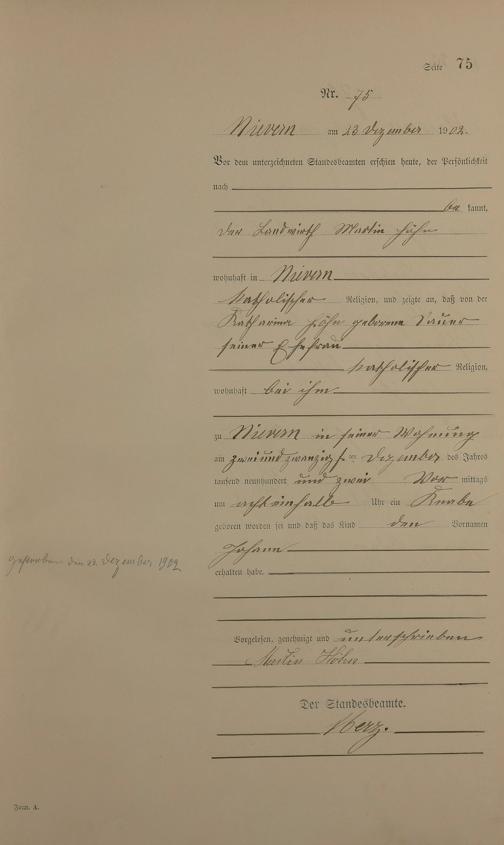 Seite 75
Nr. 75
Nievern am 23 Dezember 1902.
Vor dem unterzeichneten Standesbeamten erschien heute, der Persönlichkeit
nach
be kannt,
der Landwirth Martin Höhn
wohnhaft in Nievern
katholischer Religion, und zeigte an, daß von der
Katharina Höhn geborene Sauer
seiner Ehefrau
katholischer Religion,
wohnhaft bei ihm
zu Nievern in seiner Wohnung
am zwei und zwanzigsten Dezember des Jahres
tausend neunhundert und zwei Vor mittags
um acht einhalb Uhr ein Knabe
geboren worden sei und daß das Kind den Vornamen
Johann
erhalten habe.
gestorben den 23. Dezember 1902
Vorgelesen, genehmigt und unterschrieben
Martin Höhn
Der Standesbeamte.
Merz.
Form. A.